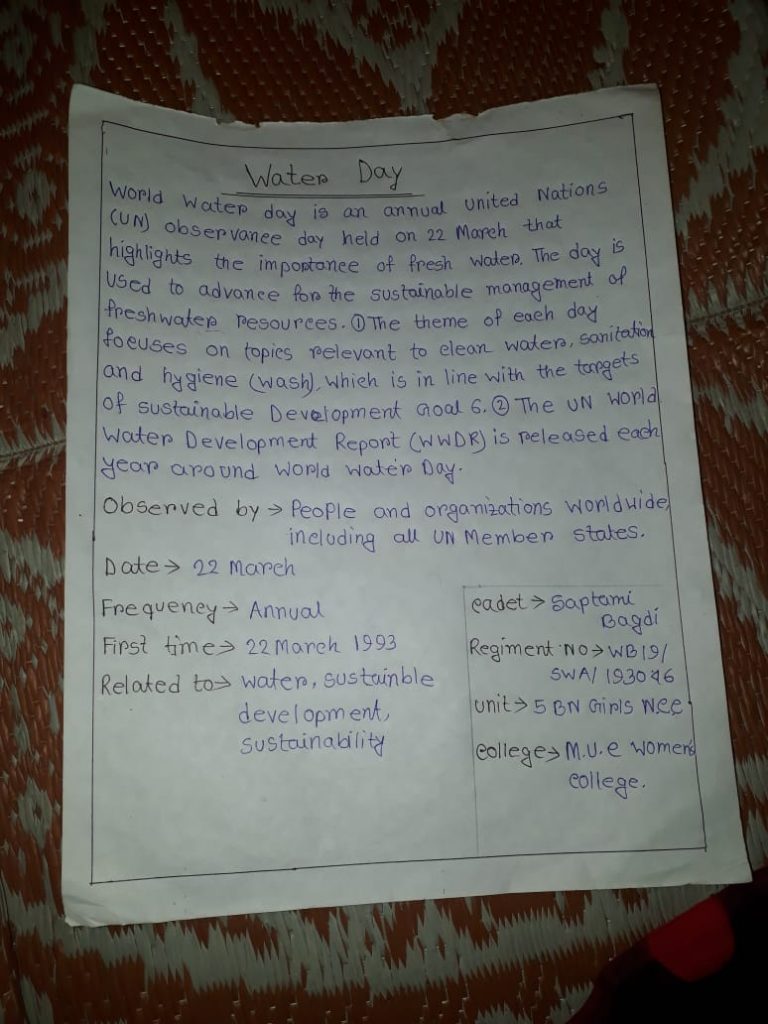 Water Day
World Water day is an annual united Nations
(UN) observance day held on 22 March that
highlights the importance of fresh water. The day is
used to advance for the sustainable management of
freshwater resources. ① The theme of each day
focuses on topics relevant to clean water, sanitation
and hygiene (wash), which is in line with the targets
of sustainable Development Goal 6. ② The UN World
Water Development Report (WWDR) is released each
year around World Water Day.
Observed by → People and organizations worldwide,
including all UN Member states.
Date → 22 March
Frequency → Annual
First time → 22 March 1993
Related to → water, sustainble
development,
sustainability
cadet → Saptami
Bagdi
Regiment NO → WB19/
SWA/193046
unit → 5 BN Girls NCC
college → M.U.C Women's
college.